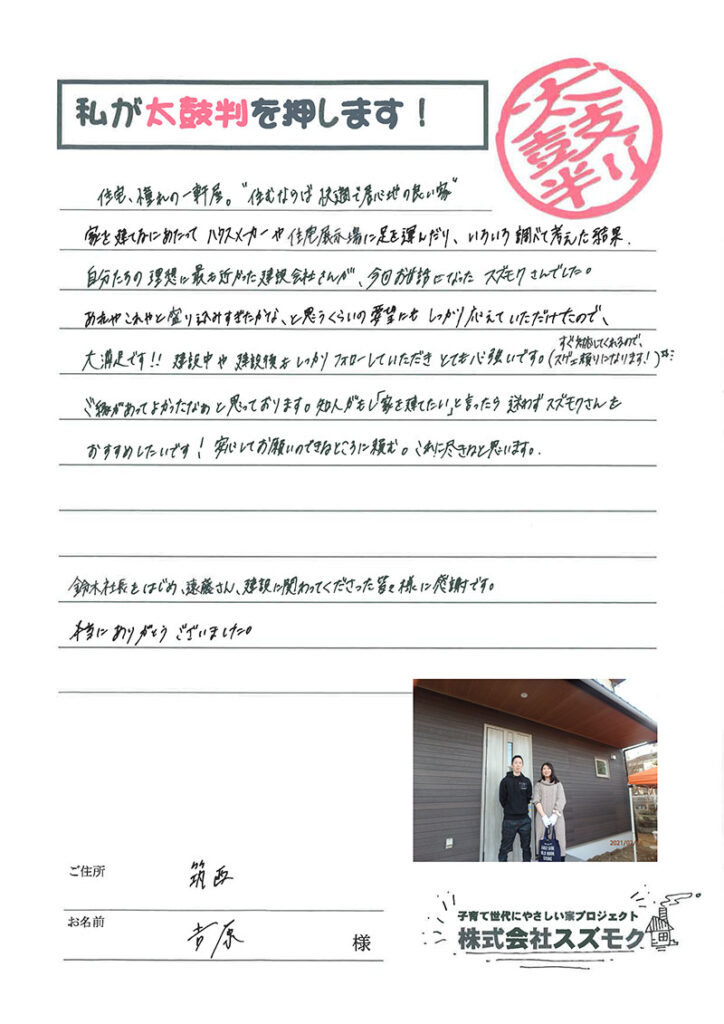 私が太鼓判を押します！
太鼓判
住宅、憧れの一軒屋。"住むならば 快適で居心地の良い家"
家を建てるにあたって ハウスメーカーや住宅展示場に足を運んだり、いろいろ調べて考えた結果、
自分たちの理想に最も近かった建設会社さんが、今回お世話になった スズモクさんでした。
あれやこれやと盛り込みすぎたかな、と思うくらいの要望にも しっかり応えていただけたので、
すぐ対応してくれるので、
大満足です!! 建設中や 建設後も しっかりフォローしていただき とても心強いです。(スゲェ頼りになります！)
ご縁があってよかったなぁと思っております。知人がもし「家を建てたい」と言ったら 迷わずスズモクさんを
おすすめしたいです！ 安心してお願いのできるところに頼む。これに尽きると思います。
鈴木社長をはじめ、遠藤さん、建設に関わってくださった皆々様に感謝です。
本当にありがとう ございました。
2021/02
ご住所 筑西
お名前 吉原 様
子育て世代にやさしい家プロジェクト
株式会社スズモク